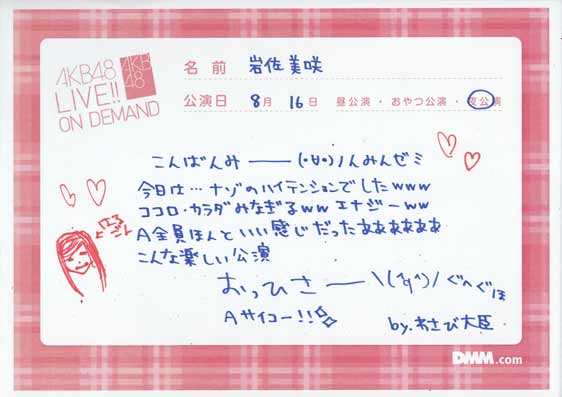 AKB48
LIVE!!
ON DEMAND
AKB
48
名前 岩佐美咲
公演日 8月 16日 昼公演・おやつ公演・夜公演
こんばんみー(・∀・)ノんみんゼミ
今日は…ナゾのハイテンションでしたwww
ココロ・カラダみなぎるww エナジーww
A全員ほんといい感じだったあああああ
こんな楽しい公演
おっひさー\(^y^)/ぐへぐほ
Aサイコー!!
by.わさび大臣
DMM.com